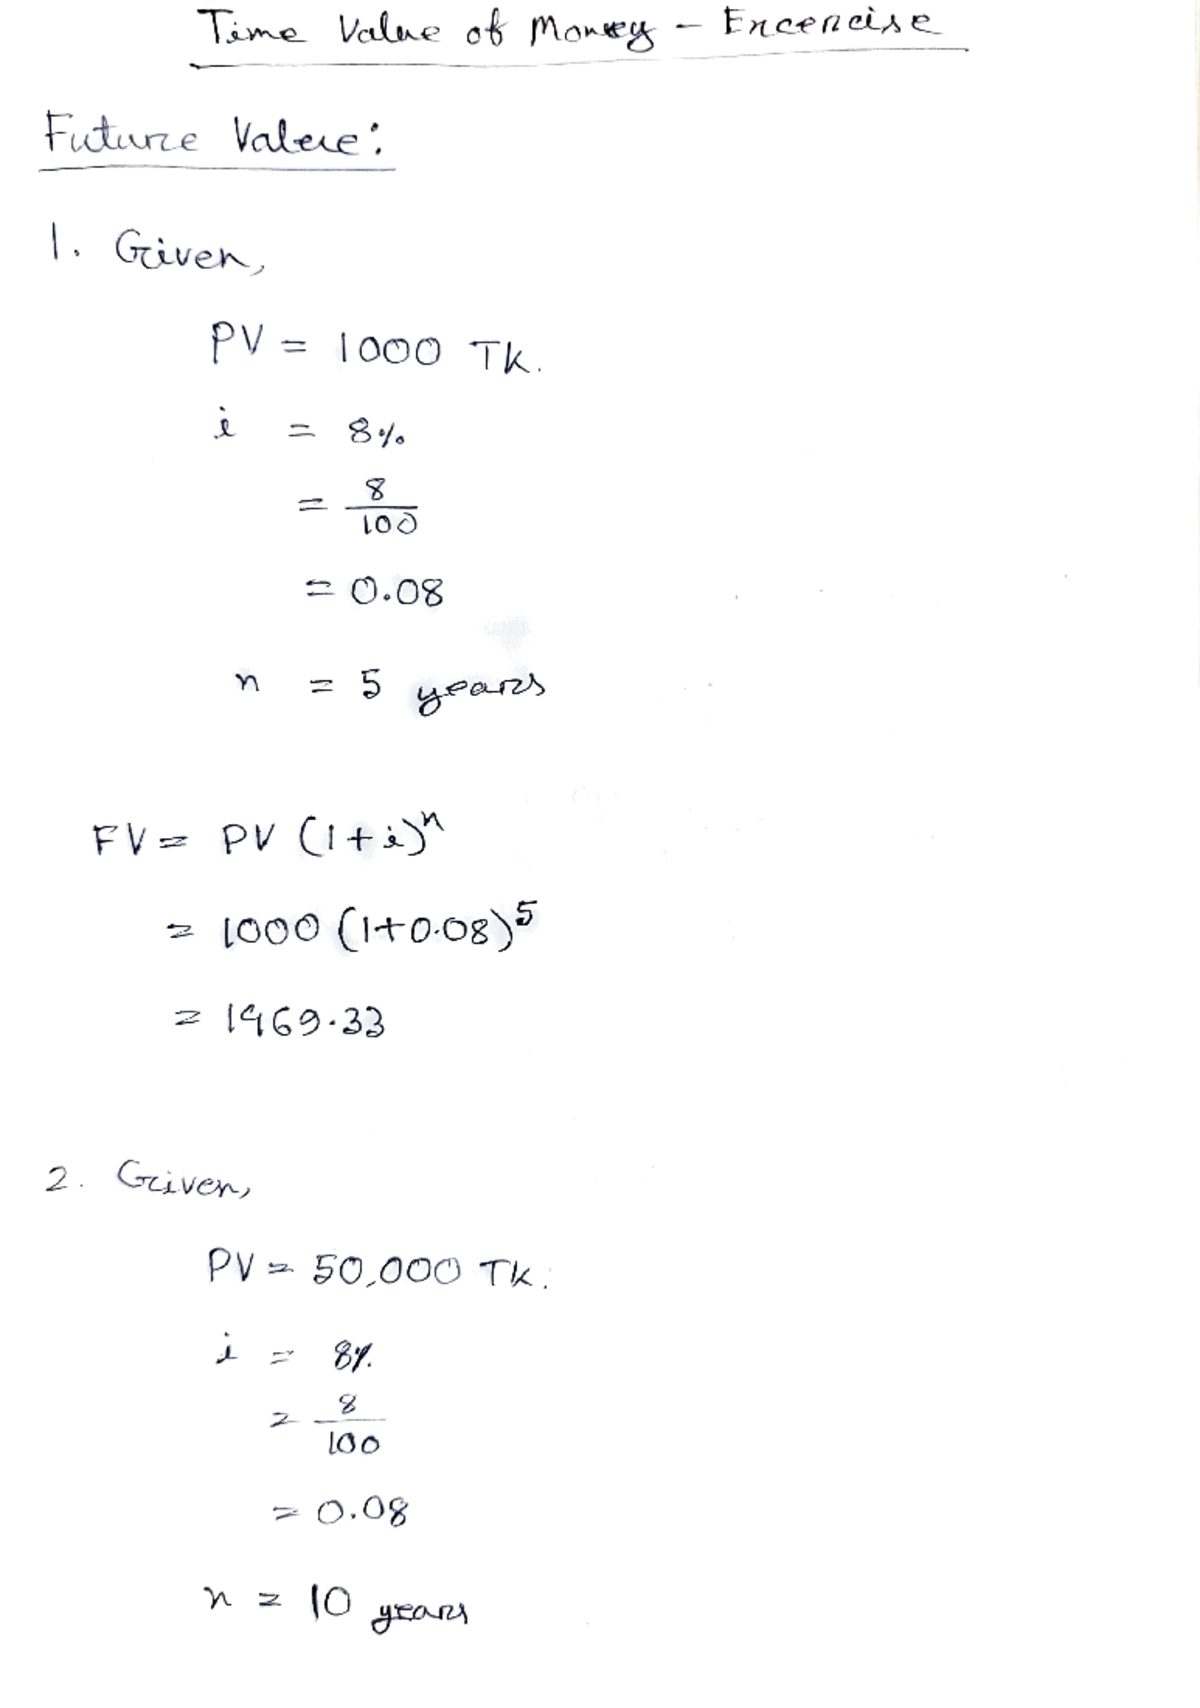 Time Value of Money - Exercise
Future Value:
1. Given,
PV = 1000 TK.
i = 8%
= 8/100
= 0.08
n = 5 years
FV = PV (1+i)^n
= 1000 (1+0.08)^5
= 1469.33
2. Given,
PV = 50,000 TK.
i = 8%
= 8/100
= 0.08
n = 10 years